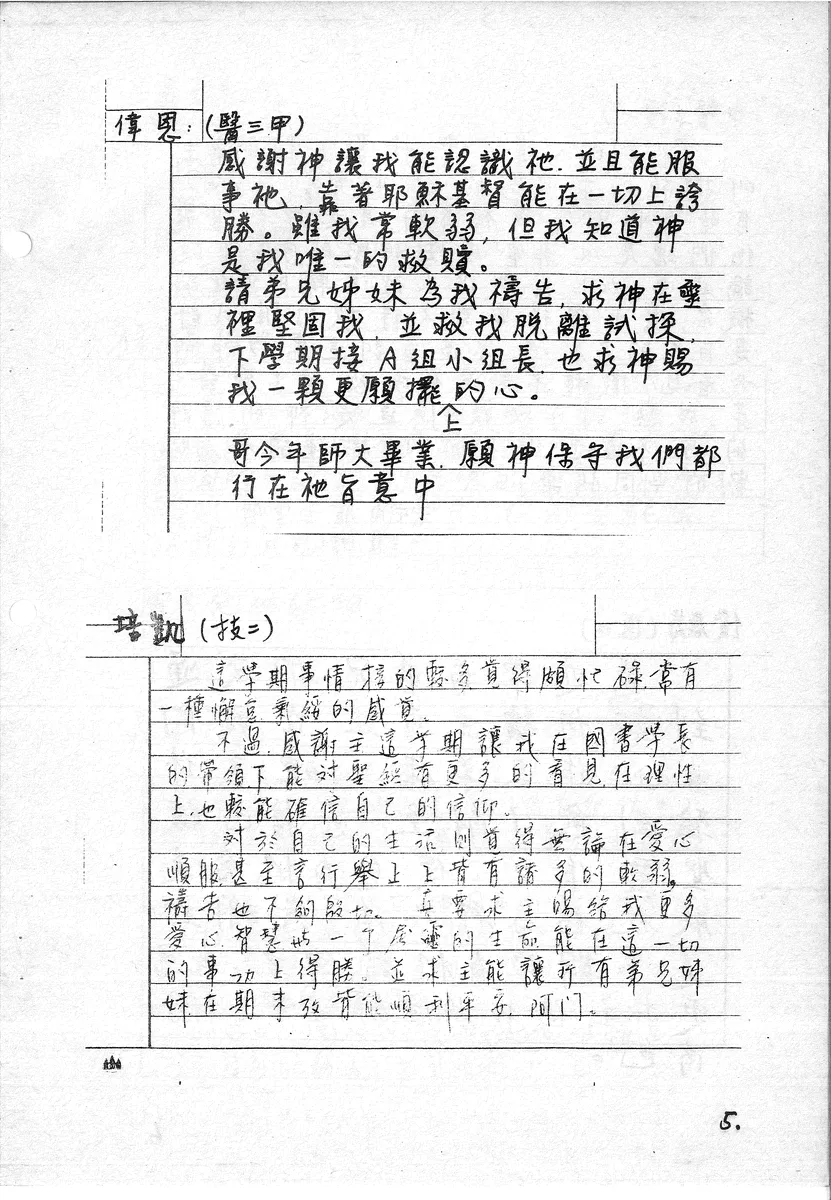 偉恩：(醫三甲)
感謝神讓我能認識祂.並且能服
事祂，靠著耶穌基督能在一切上誇
勝。雖我常軟弱，但我知道神
是我唯一的救贖。
請弟兄姊妹為我禱告，求神在靈
裡堅固我，並救我脫離試探，
下學期接A組小組長.也求神賜
我一顆更願擺上的心。
哥今年師大畢業.願神保守我們都
行在祂旨意中
培凱(技二)
這學期事情接的較多覺得頗忙碌.常有
一種懈怠氣餒的感覺。
不過.感謝主這學期讓我在國書學長
的帶領下.能對聖經有更多的看見.在理性
上.也較能確信自己的信仰。
對於自己的生活則覺得無論在愛心
順服.甚至言行舉止上皆有諸多的軟弱。
禱告也不夠殷切。真要求主賜給我更多
愛心.智慧 一個屬靈的生命能在這一切
的事功上得勝。並求主能讓所有弟兄姊
妹在期末考皆能順利平安.阿门。
5.